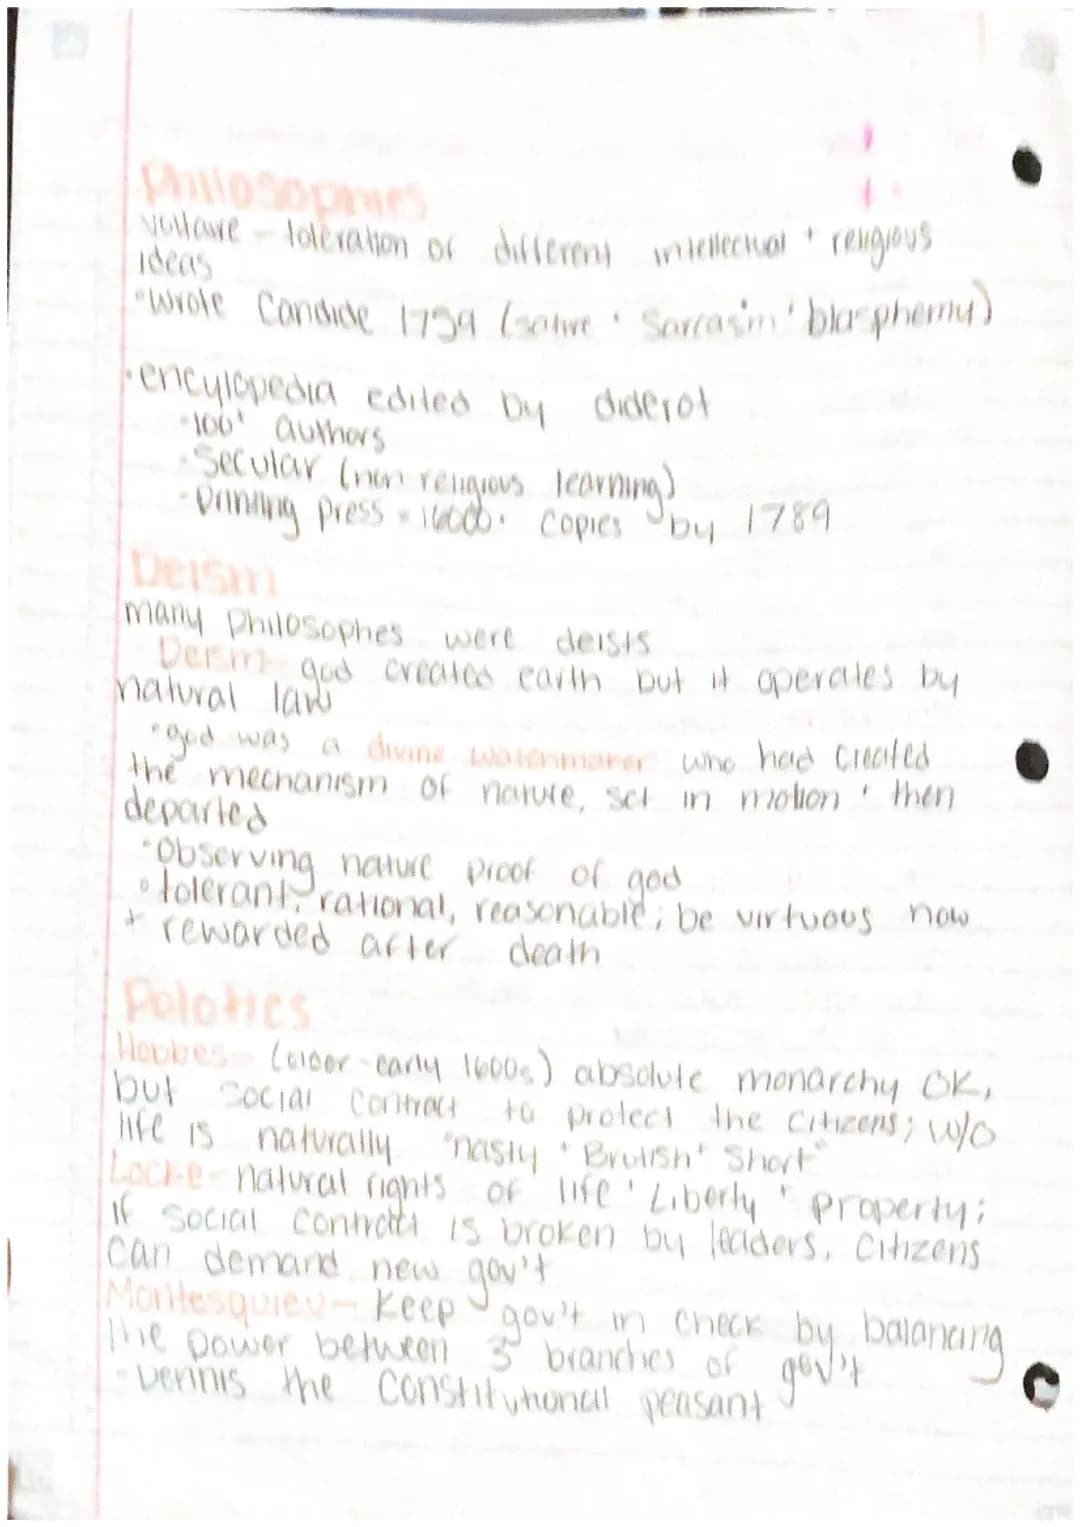 Philosophies
Voltaire - toleration of different intellectual + religious
ideas
• Wrote Candide 1759 (satire + sarcasim + blasphemy)
• encylopedia edited by diderot
• 100+ authors
• Secular (non religious learning)
• Printing press = 16000+ copies by 1789
Deism
many philosophes were deists
Deism - god created earth but it operates by
natural law
• god was a divine watchmaker who had created
the mechanism of nature, set in motion + then
departed
• Observing nature proof of god
• tolerant, rational, reasonable; be virtuous now
+ rewarded after death
Polotics
Hobbes - (older - early 1600s) absolute monarchy OK,
but social contract to protect the citizens; w/o
life is naturally "nasty + Brutish + Short"
Locke - natural rights of life + Liberty + property;
if social contract is broken by leaders, citizens
can demand new gov't
Montesquieu - Keep gov't in check by balancing
the power between 3 branches of gov't
- Dennis the Constitutional peasant